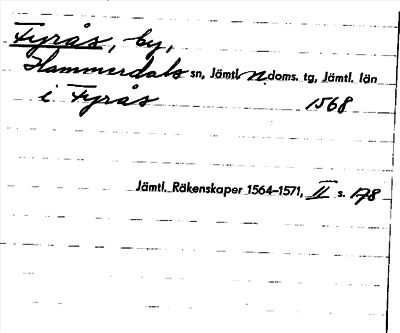 Fyrås, by,
Hammerdals sn, Jämtl. n. doms. tg, Jämtl. län
i Fyrås 1568
Jämtl. Räkenskaper 1564-1571, II s. 178